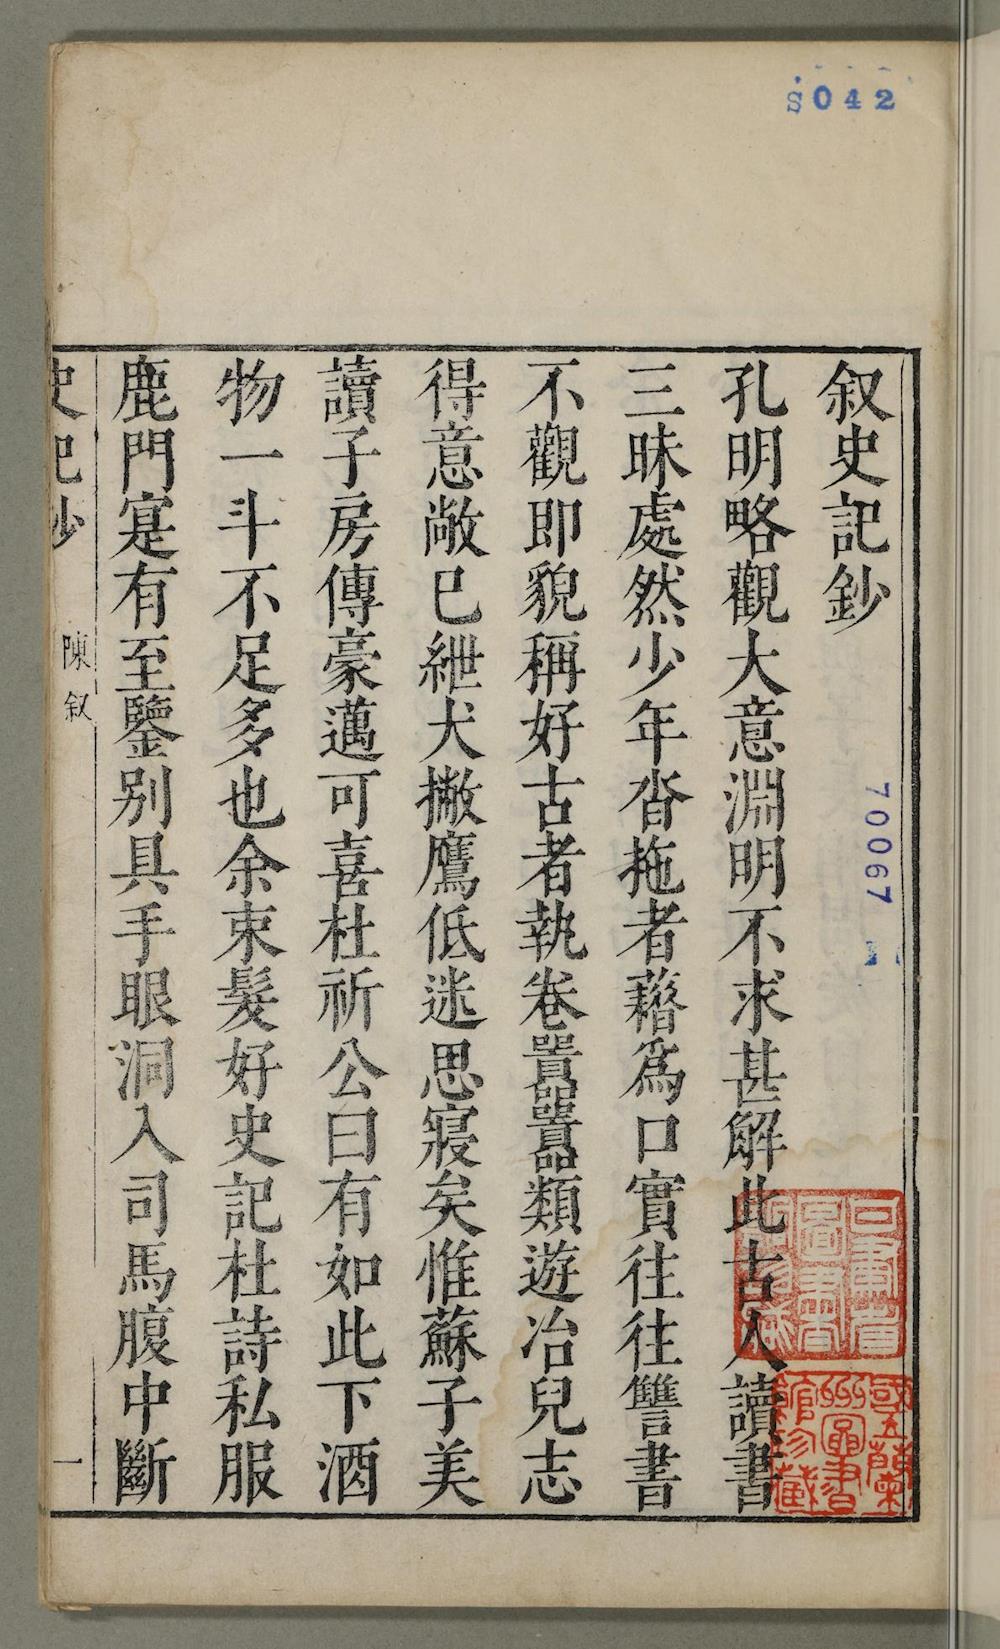 S042
叙史記鈔
孔明略觀大意淵明不求甚解此古人讀書
三昧處然少年沓拖者藉爲口實往往讐書
不觀即貌稱好古者執卷囂囂類遊冶兒志
得意敞已紲犬撇鷹低迷思寢矣惟蘇子美
讀子房傳豪邁可喜杜祈公曰有如此下酒
物一斗不足多也余束髮好史記杜詩私服
鹿門寔有至鑒別具手眼洞入司馬腹中斷
史記鈔
陳叙
一
70067
國立蘭州圖書館珍藏